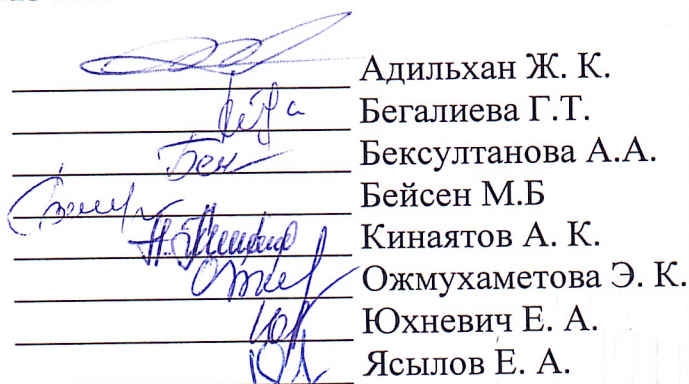 Адильхан Ж. К.
Бегалиева Г.Т.
Бексултанова А.А.
Бейсен М.Б
Кинаятов А. К.
Ожмухаметова Э. К.
Юхневич Е. А.
Ясылов Е. А.